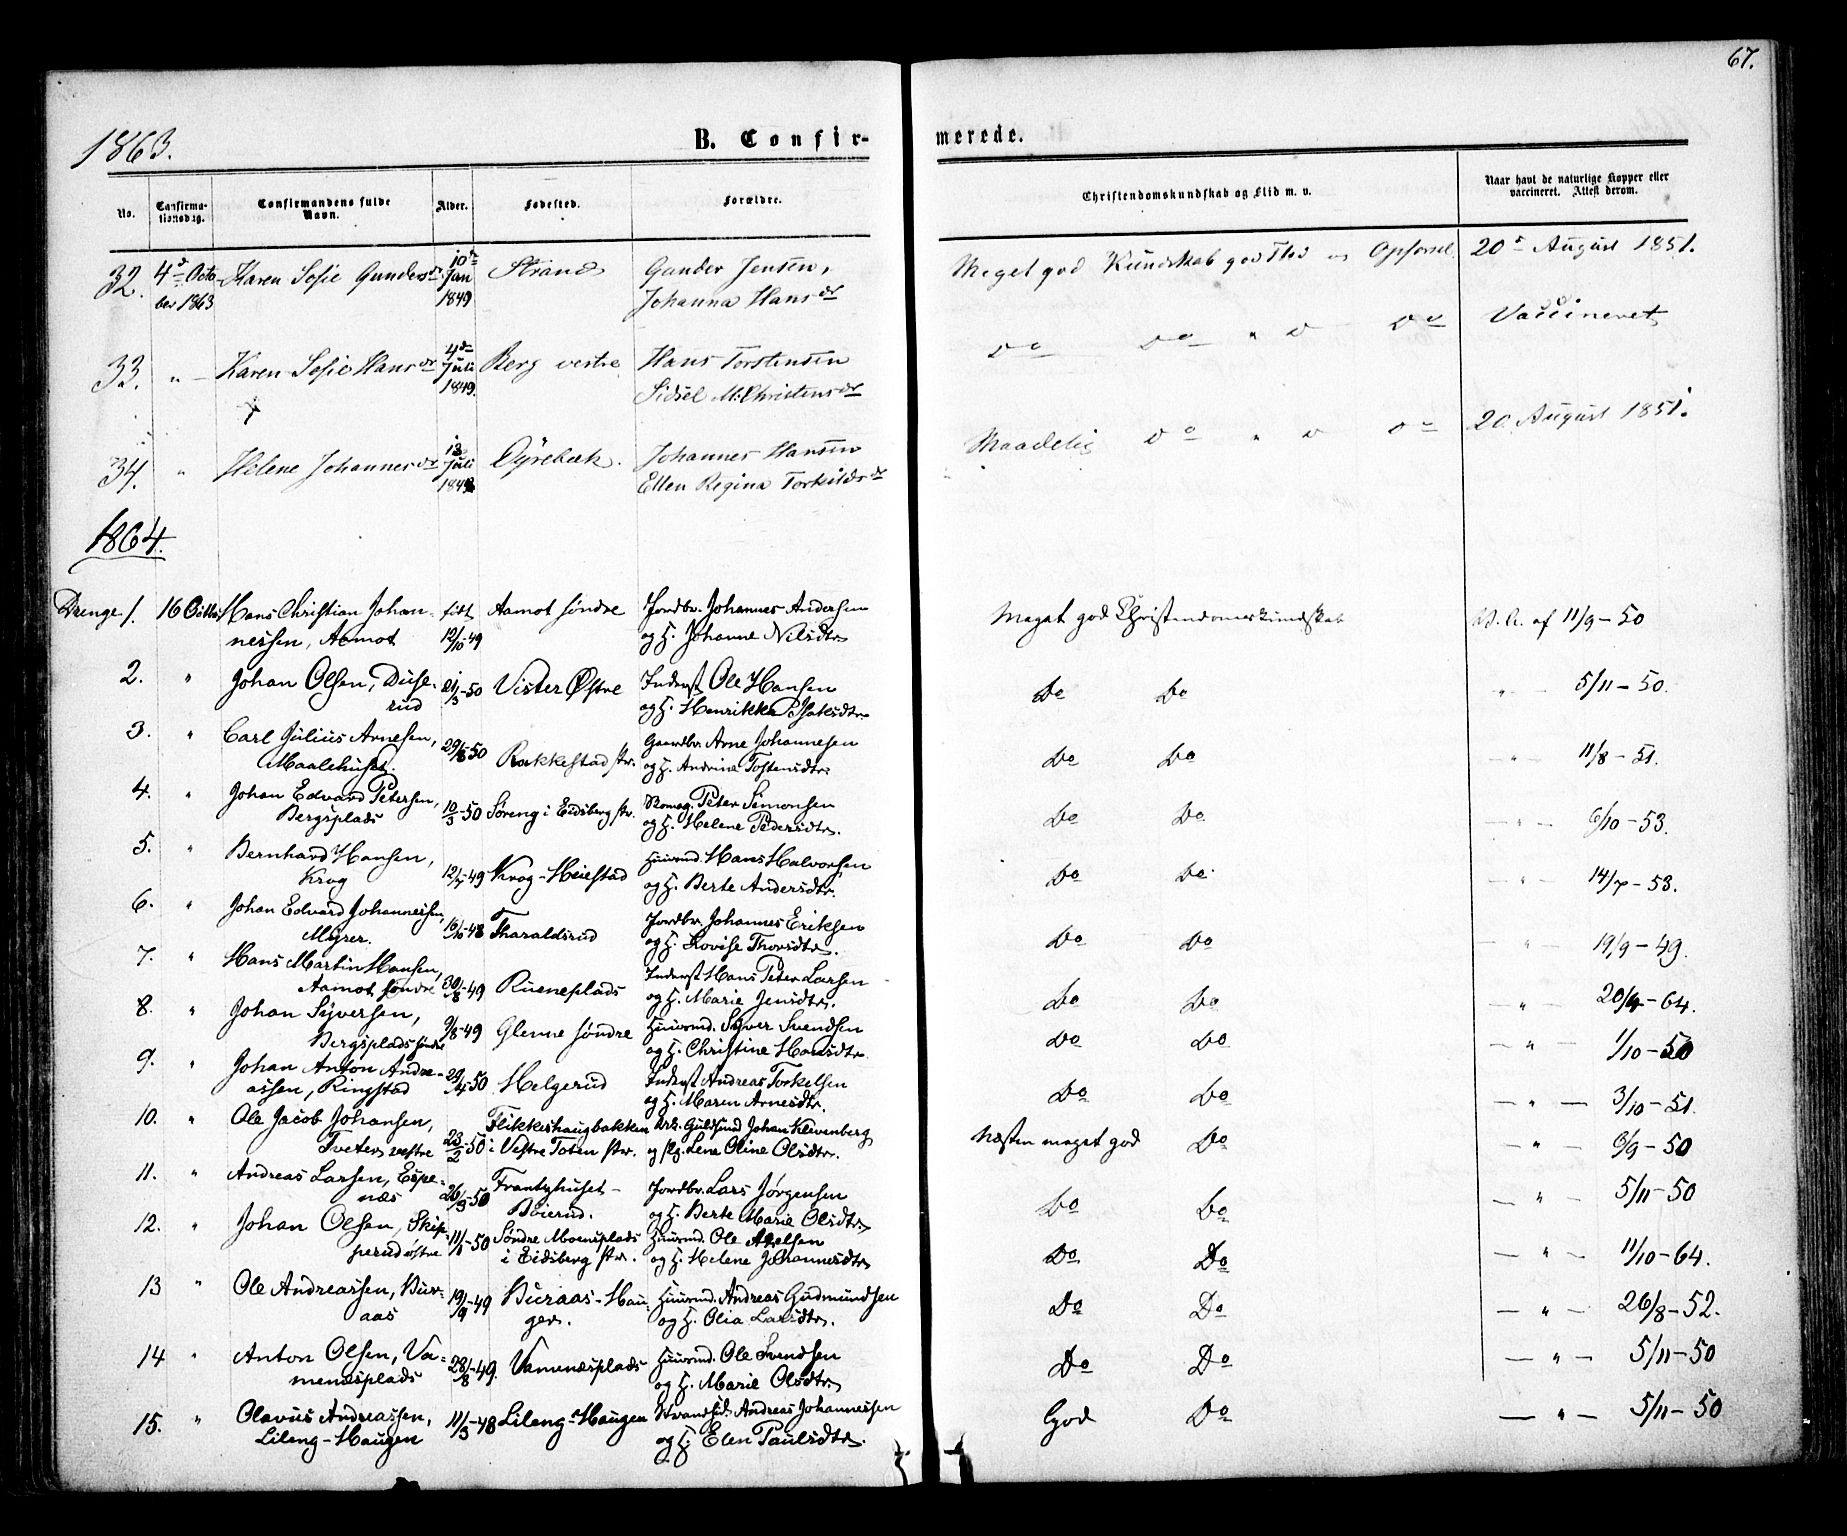 67.
1863.
B. Confir-
merede.
No.
Confirma-
tionsdag.
Confirmandens fulde
Navn.
Alder.
Fødested.
Forældre.
Christendomskundskab og Flid m. v.
Naar havt de naturlige Kopper eller
vaccineret. Attest derom.
32. 4de Octo Karen Sofie Gundersdr 10de Jan Strand Gunder Jensen, Meget god Kundskab god Flid og Opførsel 20de August 1851.
ber 1863 1849 Johanna Hansdr Vaccineret
33. " Karen Sofie Hansdr 4de Juli Berg vestre Hans Torstensen Do Do " D Do
1849. Sidsel M. Christensdr
34. " Helene Johannesdr 12 Juli Dyrebæk. Johannes Hansen Maadelig Do " D Do 20 August 1851.
1849 Ellen Regina Torkildsdr
1864.
Drenge 1. 16 Octbr Hans Christian Johan- født Aamot søndre Jordbr. Johannes Andersen Meget god Christendomskundskab V. A. af 11/9-50
nessen, Aamot 12/10-49 og H. Johanne Nilsdtr.
2. " Johan Olsen, Duse- 21/3-50 Vister Østre Inderst Ole Hansen Do Do " 5/11-50.
rud og H. Henrikke Isaksdtr.
3. " Carl Julius Arnesen, 29/8-50 Rakkestad ptr. Gaardbr. Arne Johannesen Do Do " 11/8-51.
Maalehuset. og H. Andrine Tostensdtr.
4. " Johan Edvard Petersen, 10/3-50 Søreng i Eidsberg ptr. Skomag. Peter Simonsen Do Do " 6/10-53.
Bergsplads og H. Helene Pedersdtr.
5. " Bernhard Hansen, 12/7-49 Krog-Heiestad Huusmd. Hans Halvorsen Do Do " 14/7-53.
Krog og H. Berte Andersdtr.
6. " Johan Edvard Johannessen, 16/10-48 Tharaldsrud Jordbr. Johannes Eriksen Do Do " 19/9-49.
Myrer. og H. Lovise Thorsdtr.
7. " Hans Martin Hansen, 30/8-49 Rueneplads Inderst Hans Peter Larsen Do Do " 20/4-64.
Aamot søndre og H. Marie Jensdtr.
8. " Johan Syversen, 9/8-49 Glenne søndre Huusmd. Syver Svendsen Do Do " 1/10-50
Bergsplads søndre og H. Christine Hansdtr.
9. " Johan Anton Andre- 29/4-50 Helgerud Inderst Andreas Torkelsen Do Do " 3/10-51.
assen, Ringstad og H. Maren Arnesdtr.
10. " Ole Jacob Johansen, 23/2-50 Flikkeshaugbakken Arb. Guldsmd Johan Klevenberg Næsten meget god Do " 6/9-50
Tveter vestre i Vestre Toten ptr. og Pg. Lene Oline Olsdtr.
11. " Andreas Larsen, Espe- 26/9-50 Frantzhuset- Jordbr. Lars Jørgensen Do Do " 5/11-50
næs Bøierud. og H. Berte Marie Olsdtr.
12. " Johan Olsen, Skip- 11/1-50 Søndre Moensplads Huusmd. Ole Axelsen Do Do " 11/10-64.
perud østre i Eidsberg ptr. og H. Helene Johannesdtr.
13 " Ole Andreassen, Bur- 19/9-49 Buraas-Hau- Huusmd. Andreas Gudmundsen Do Do " 26/8-52.
aas gen. og H. Olia Larsdtr.
14 " Anton Olsen, Va- 28/8-49. Vamenæsplads Huusmd. Ole Svendsen Do Do " 5/11-50
menæsplads og H. Marie Olsdtr.
15. " Olavus Andreassen, 11/3-48 Lileng-Haugen Strandsid. Andreas Johannessen God Do " 5/11-50
Lileng-Haugen og H. Elen Paulsdtr.